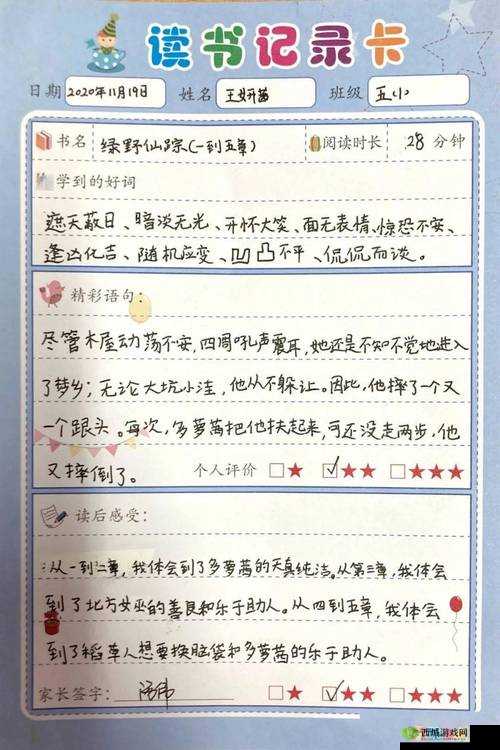 读书记录卡
日期 2020年11月19日 姓名 王妍茜 班级 五小
书名 绿野仙踪(一到五章) 阅读时长 28 分钟
学到的好词
遮天蔽日、暗淡无光、开怀大笑、面无表情、惊恐不安、
逢凶化吉、随机应变、凹凸不平、侃侃而谈。
精彩语句:
尽管木屋动荡不安,四周吼声震耳,她还是不知不觉地进入
了梦乡;无论大坑小洼,他从不躲让。因此,他摔了一个又
一个跟头。每次,多萝茜把他扶起来,可还没走两步,他
又摔倒了。 个人评价 □★ ☑★★ □★★★
读后感受:
从一到二章,我体会到了多萝茜的天真纯洁。从第三章,我体会
到了北方女巫的善良和乐于助人。从四到五章,我体会
到了稻草人想要换脑袋和多萝茜的乐于助人。
家长签字: □★ ☑★★ □★★★
西城游戏网